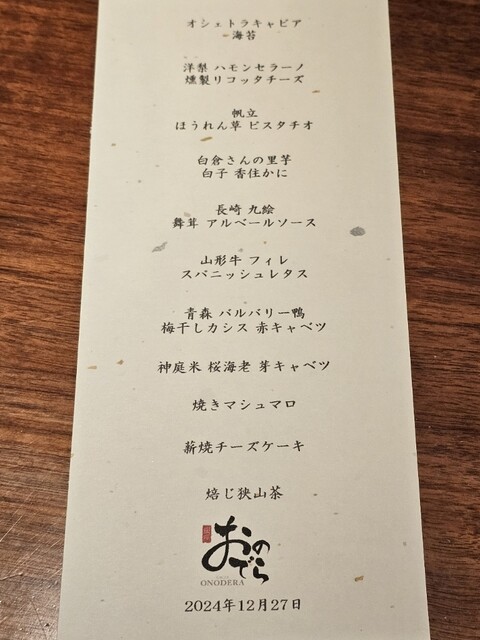 オシェトラキャビア
海苔
洋梨 ハモンセラーノ
燻製リコッタチーズ
帆立
ほうれん草 ピスタチオ
白倉さんの里芋
白子 香住かに
長崎 九絵
舞茸 アルベールソース
山形牛 フィレ
スパニッシュレタス
青森 バルバリー鴨
梅干しカシス 赤キャベツ
神庭米 桜海老 芽キャベツ
焼きマシュマロ
薪焼チーズケーキ
焙じ狭山茶
おのでら
ONODERA
2024年12月27日